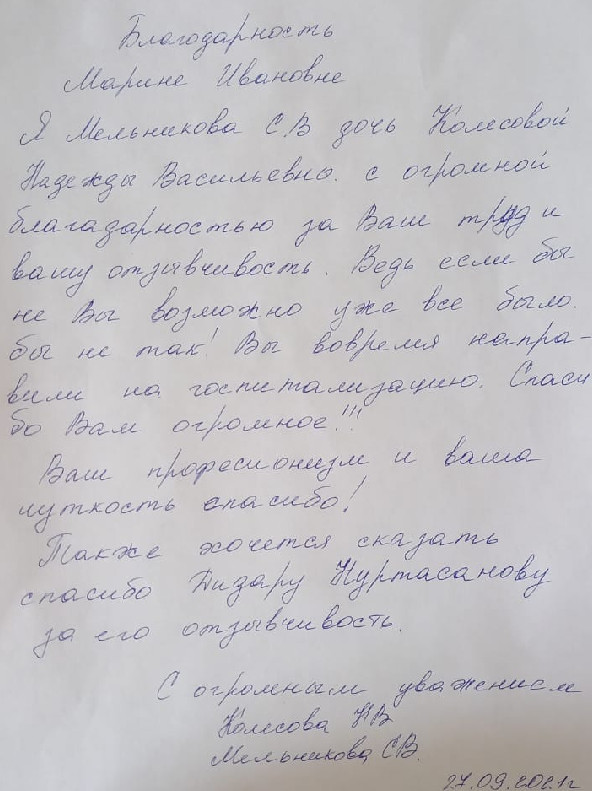 Благодарность
Марине Ивановне
Я Мельникова С В дочь Колесовой
Надежды Васильевны. с огромной
благадарностью за Ваш труд и
вашу отзывчивость. Ведь если бы
не Вы возможно уже все было.
бы не так! Вы вовремя напра-
вили на госпитализацию. Спаси
бо Вам огромное!!!
Ваш професионизм и ваша
чуткость спасибо!
Также хочется сказать
спасибо Низару Нуртасанову
за его отзывчивость.
С огромным уважением
Колесова НВ
Мельникова СВ.
27.09.2021г